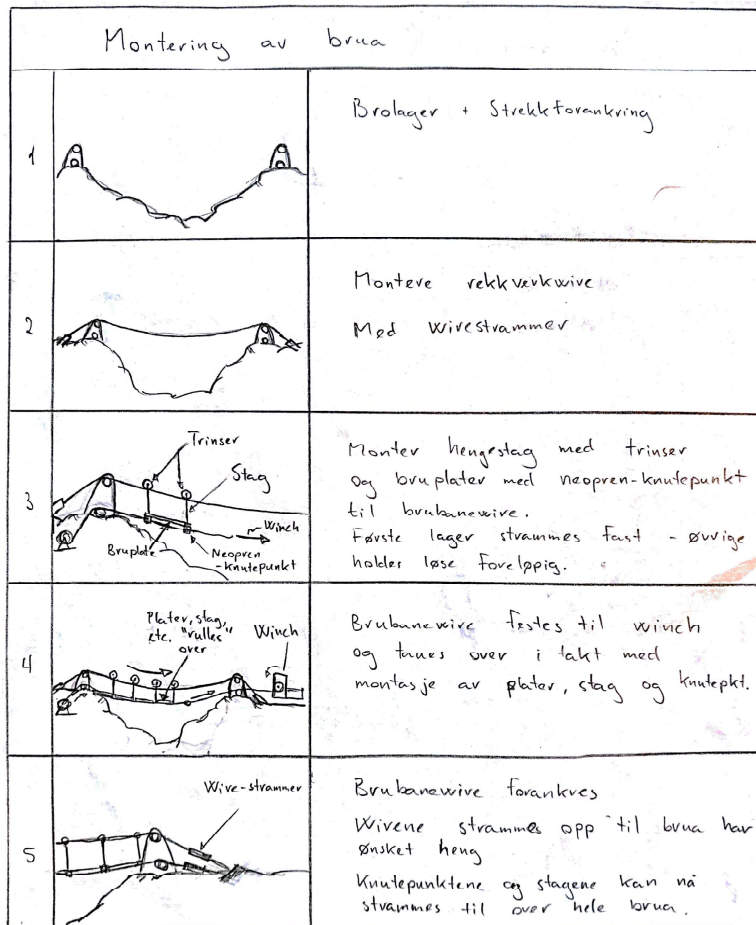 Montering av brua
1
Brolager + Strekkforankring
2
Montere rekkverkwire
Med Wirestrammer
3
Trinser
Stag
Winch
Bruplate
Neopren
-knutepunkt
Monter hengestag med trinser
og bruplater med neopren-knutepunkt
til brubanewire.
Første lager strammes fast - øvrige
holdes løse foreløpig.
4
Plater, stag,
etc. "rulles"
over
Winch
Brubanewire festes til winch
og taues over i takt med
montasje av plater, stag og knutepkt.
5
Wire-strammer
Brubanewire forankres
Wirene strammes opp til brua har
ønsket heng
Knutepunktene og stagene kan nå
strammes til over hele brua.